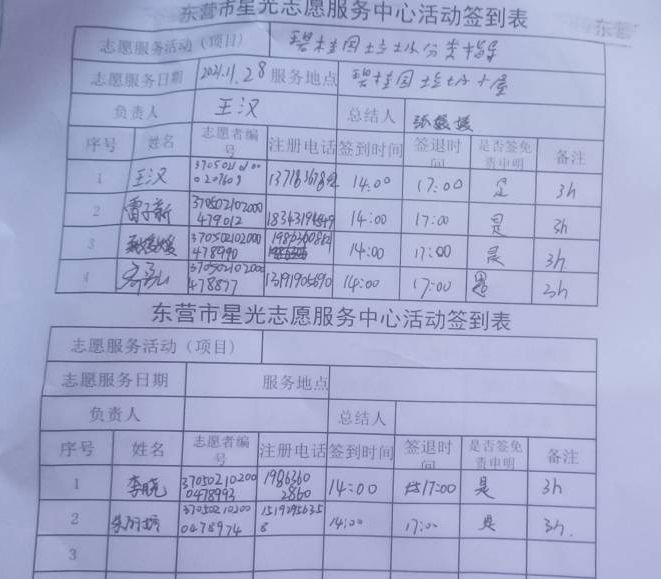 东营市星光志愿服务中心活动签到表
东营
志愿服务活动（项目） 碧桂园垃圾分类指导
志愿服务日期 2021.11.28 服务地点 碧桂园垃圾小屋
负责人 王汉 总结人 张媛媛
序号 姓名 志愿者编号 注册电话 签到时间 签退时间 是否签免责申明 备注
1 王汉 14:00 17:00 是 3h
2 雷子新 370502102000479012 14:00 17:00 是 3h
3 张媛媛 370502102000478990 14:00 17:00 是 3h
4 370502102000478877 13191905690 14:00 17:00 是 3h
东营市星光志愿服务中心活动签到表
志愿服务活动（项目）
志愿服务日期 服务地点
负责人 总结人
序号 姓名 志愿者编号 注册电话 签到时间 签退时间 是否签免责申明 备注
1 李晓 370502102000478993 19863602860 14:00 17:00 是 3h
2 370502102000478974 15192956358 14:00 17:00 是 3h.
3